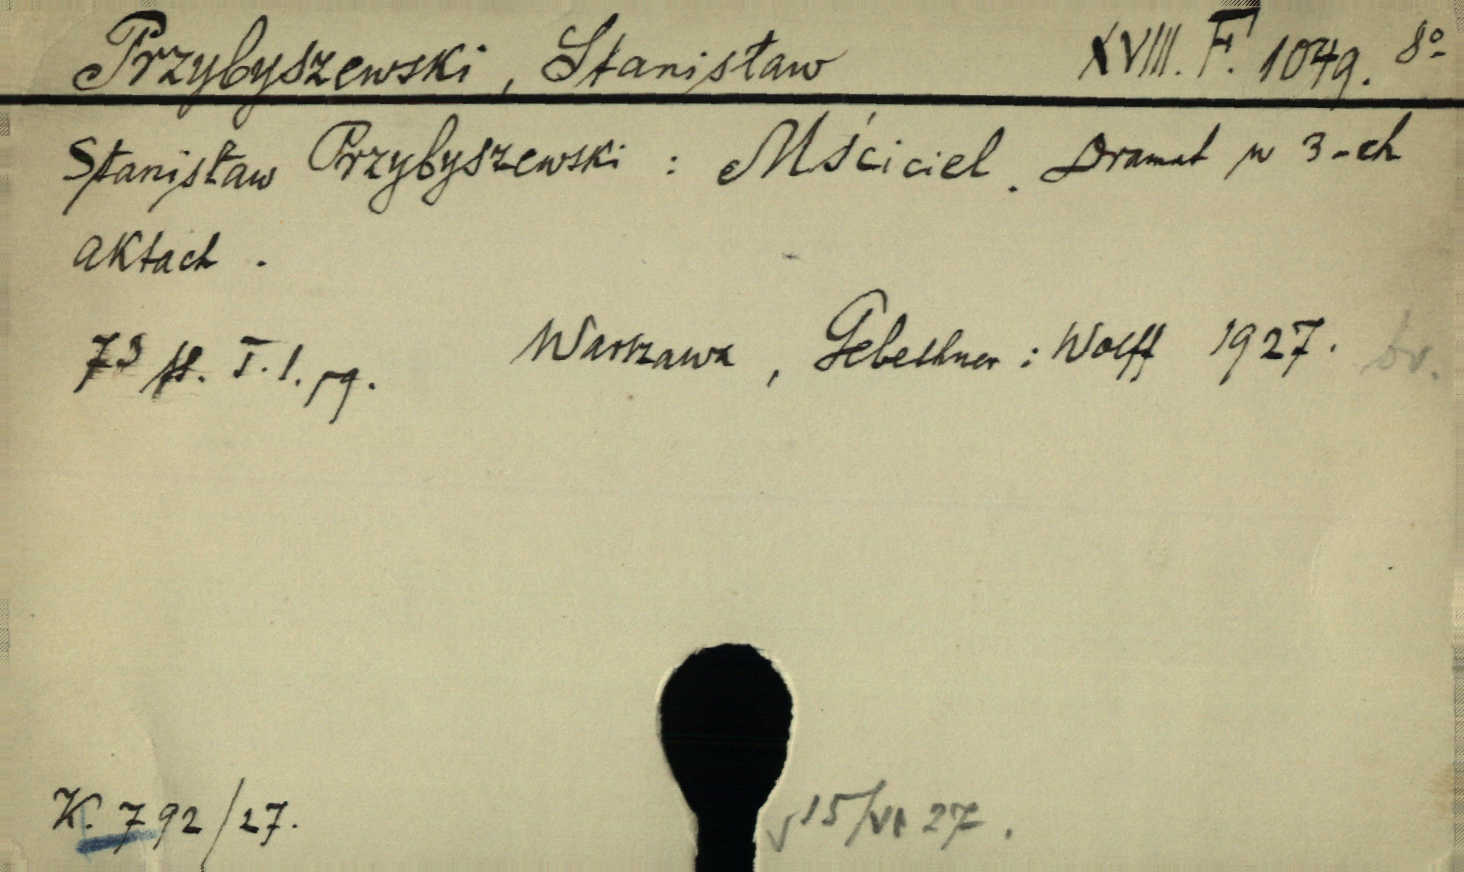 Przybyszewski, Stanisław XVIII. F. 1049. 8º
Stanisław Przybyszewski : Mściciel. Dramat w 3-ch
aktach.
73 st. T. l. pg. Warszawa, Gebethner i Wolff 1927. br.
K. 792/27.
√ 15/VI 27.